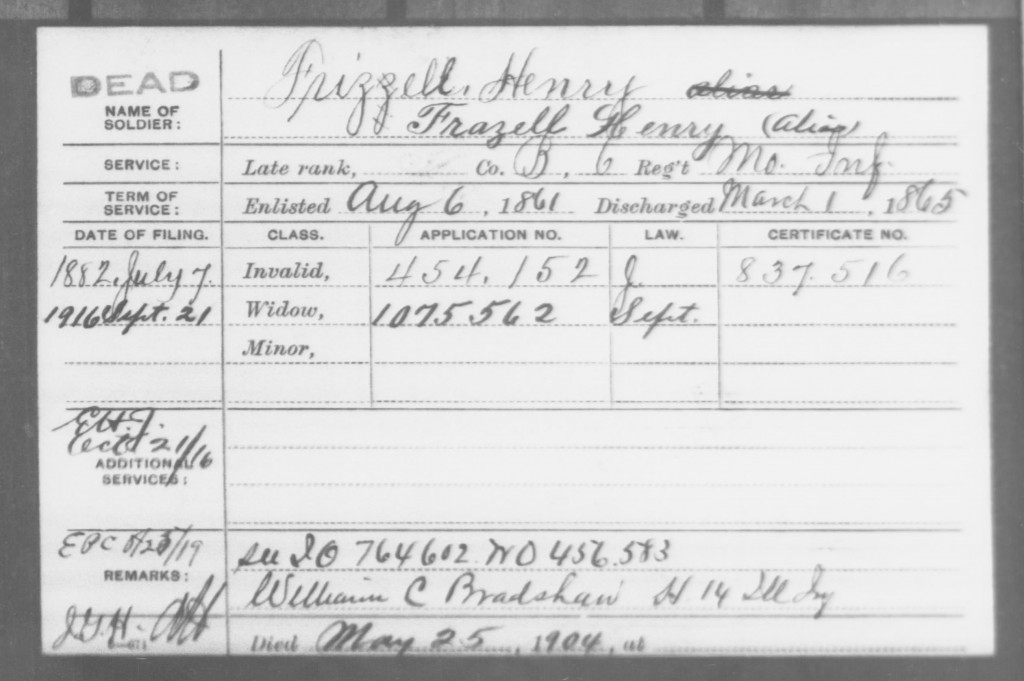 DEAD
Frizzell, Henry alias
NAME OF SOLDIER:
Frazell Henry (alias)
SERVICE: Late rank, Co. B, 6 Reg't Mo. Inf.
TERM OF SERVICE: Enlisted Aug 6, 1861 Discharged March 1, 1865
DATE OF FILING. CLASS. APPLICATION NO. LAW. CERTIFICATE NO.
1882, July 7. Invalid, 454.152 J. 837.516
1916 Sept. 21 Widow, 1075562 Sept.
Minor,
E.H.J.
Oct 21/16
ADDITIONAL SERVICES:
EPC 8/25/19 see I O 764602. WO 456.583
REMARKS: William C Bradshaw H 14 Ill Inf
J.G.H.
Died May 25, 1904, at